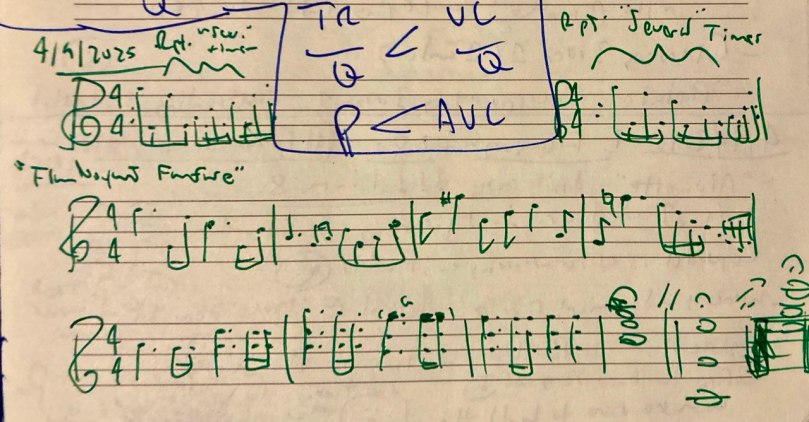 Q
4/9/2025 Rpt. "Sev." times
TR/Q < VC/Q
P < AVC
Rpt. "Several" Times
4 4
4 4
"Flamboyant Fanfare"
4 4
4 4